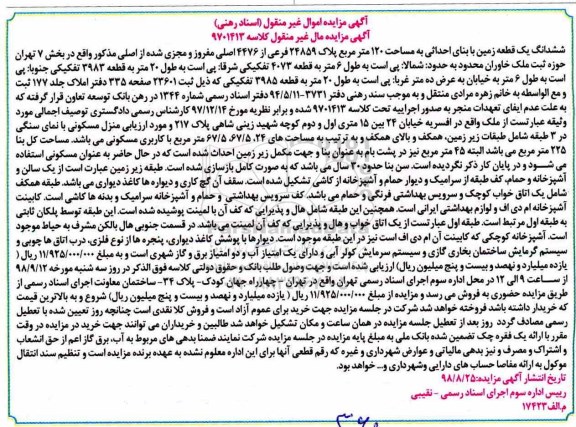 آگهی مزایده اموال غیر منقول (اسناد رهنی)
آگهی مزایده مال غیر منقول کلاسه ۹۷۰۱۴۱۳
ششدانگ یک قطعه زمین با بنای احداثی به مساحت ۱۲۰ متر مربع پلاک ۲۴۸۵۹ فرعی از ۴۴۷۶ اصلی مفروز و مجزی شده از اصلی مذکور واقع در بخش ۷ تهران
حوزه ثبت ملک خاوران محدود به حدود: شمالا: پی است به طول ۶ متر به قطعه ۴۰۷۳ تفکیکی شرقا: پی است به طول ۲۰ متر به قطعه ۳۹۸۳ تفکیکی جنوبا: پی
است به طول ۶ متر به خیابان به عرض ده متر غربا: پی است به طول ۲۰ متر به قطعه ۳۹۸۵ تفکیکی که ذیل ثبت ۲۳۶۰۱ صفحه ۳۳۵ دفتر املاک جلد ۱۷۷ ثبت
و مع الواسطه به خانم زهره مرادی منتقل و به موجب سند رهنی دفتر ۳۷۳۱-۹۴/۵/۱۱ دفتر اسناد رسمی شماره ۱۳۴۴ در رهن بانک توسعه تعاون قرار گرفته که
به علت عدم ایفای تعهدات منجر به صدور اجراییه تحت کلاسه ۹۷۰۱۴۱۳ شده و برابر نظریه مورخ ۹۷/۱۲/۱۴ کارشناس رسمی دادگستری توصیف اجمالی مورد
وثیقه عبارتست از ملک واقع در افسریه خیابان ۲۴ بین ۱۵ متری اول و دوم کوچه شهید زینی شاهی پلاک ۲۱۷ و مورد ارزیابی منزل مسکونی با نمای سنگی
در ۳ طبقه شامل طبقات زیر زمین، همکف و بالای همکف و به ترتیب به مساحت های ۲۴، ۶۷/۵، ۶۷/۵ متر مربع با کاربری مسکونی می باشد. مساحت کل بنا
۲۲۵ متر مربع می باشد البته ۴۵ متر مربع نیز در پشت بام به عنوان بنا و جهت مکمل زیر زمین احداث شده است که در حال حاضر به عنوان مسکونی استفاده
می شود و در پایان کار ذکر نگردیده است. سن بنا حدود ۳۰ سال می باشد که به صورت کامل بازسازی شده است. طبقه زیر زمین عبارت است از یک سالن و
آشپزخانه و حمام، کف طبقه از سرامیک و دیوار حمام و آشپزخانه از کاشی تشکیل شده است. سقف آن گچ کاری و دیواره ها کاغذ دیواری می باشد. طبقه همکف
شامل یک اتاق خواب کوچک و سرویس بهداشتی فرنگی و حمام می باشد. کف سرویس بهداشتی و حمام و آشپزخانه سرامیک و بدنه ها کاشی است. کابینت
آشپزخانه ام دی اف و لوازم بهداشتی ایرانی است. همچنین این طبقه شامل هال و پذیرایی که کف آن با لمینت پوشیده شده است. این طبقه توسط پلکان ثابتی
به طبقه اول مرتبط است. طبقه اول عبارت است از یک اتاق خواب و هال و پذیرایی که کف آن لمینت می باشد. در قسمت جنوبی هال بالکن مشرف به حیاط موجود
است. آشپزخانه کوچکی که کابینت آن ام دی اف است نیز در این طبقه موجود است. دیوارها با پوشش کاغذ دیواری، پنجره ها از نوع فلزی، درب اتاق ها چوبی و
سیستم گرمایش ساختمان بخاری گازی و سیستم سرمایش کولر آبی و دارای یک امتیاز آب و دو امتیاز برق و گاز شهری است و به مبلغ ۱۱/۹۲۵/۰۰۰/۰۰۰ ریال (
یازده میلیارد و نهصد و بیست و پنج میلیون ریال) ارزیابی شده است و جهت وصول طلب بانک و حقوق دولتی کلاسه فوق الذکر در روز سه شنبه مورخه ۹۸/۹/۱۲
از ساعت ۹ الی ۱۲ در محل اداره سوم اجرای اسناد رسمی تهران واقع در تهران – چهارراه جهان کودک– پلاک ۳۴– ساختمان معاونت اجرای اسناد رسمی از
طریق مزایده حضوری به فروش می رسد و مزایده از مبلغ ۱۱/۹۲۵/۰۰۰/۰۰۰ ریال ( یازده میلیارد و نهصد و بیست و پنج میلیون ریال) شروع و به بالاترین قیمت
که خریدار داشته باشد فروخته خواهد شد شرکت در جلسه مزایده جهت خرید برای عموم آزاد است و فروش کلا نقدی است چنانچه روز تعیین شده با تعطیل
رسمی مصادف گردد روز بعد از تعطیل جلسه مزایده در همان ساعت و مکان تشکیل خواهد شد طالبین و خریداران می توانند جهت خرید در مزایده در وقت
مقرر با ارائه یک فقره چک تضمین شده بانک ملی به مبلغ پایه مزایده در جلسه مزایده شرکت نمایند ضمنا بدهی های مربوط به آب، برق گاز اعم از حق انشعاب
و اشتراک و مصرف و نیز بدهی مالیاتی و عوارض شهرداری و غیره که رقم قطعی آنها برای این اداره معلوم نشده به عهده برنده مزایده است و تنظیم سند انتقال
موکول به ارائه مفاصا حساب های دارایی وشهرداری و... خواهد بود.
تاریخ انتشار آگهی مزایده: ۹۸/۸/۲۵
رییس اداره سوم اجرای اسناد رسمی - نقیبی
م.الف ۱۷۴۲۳